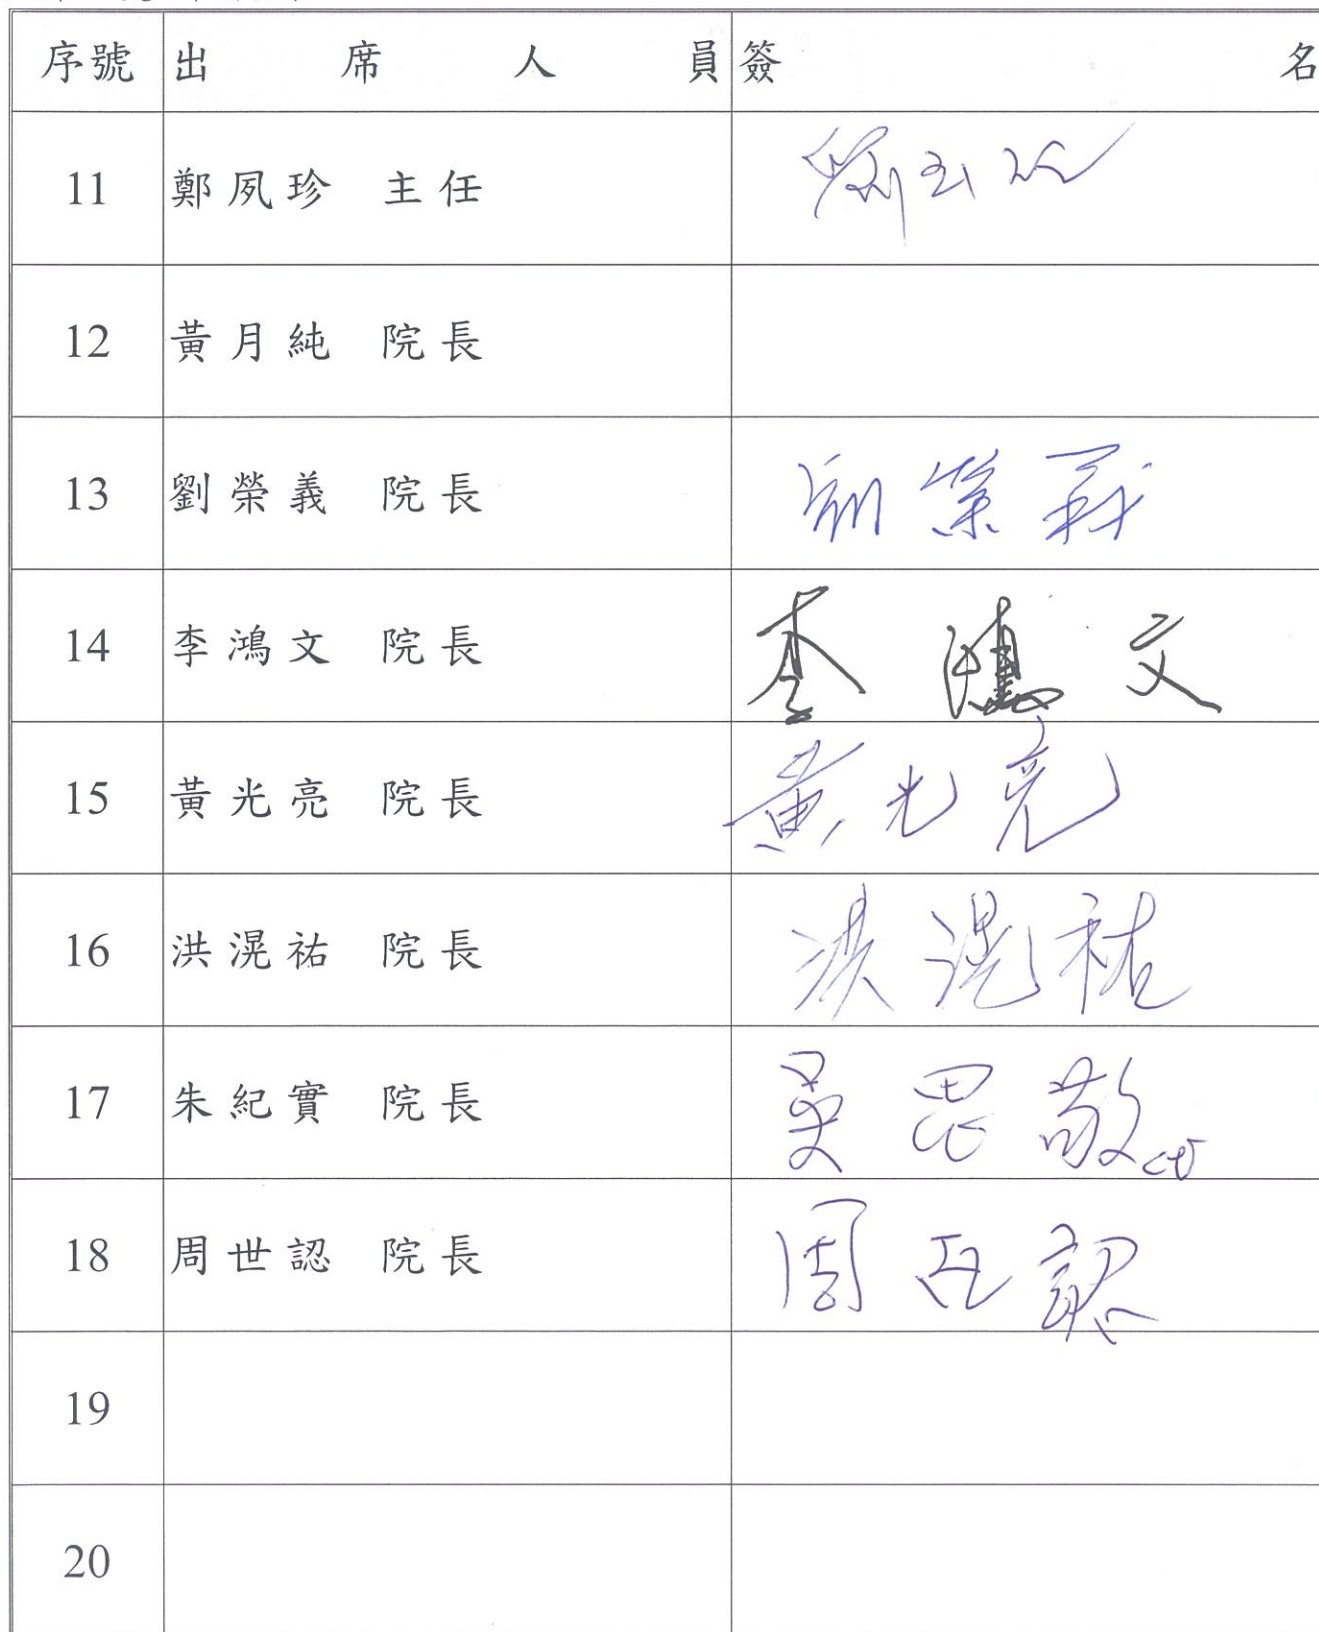 序號 出席人員 簽名
11 鄭夙珍 主任
12 黃月純 院長
13 劉榮義 院長 劉榮義
14 李鴻文 院長 李鴻文
15 黃光亮 院長 黃光亮
16 洪滉祐 院長 洪滉祐
17 朱紀實 院長 吳思敬代
18 周世認 院長 周世認
19
20